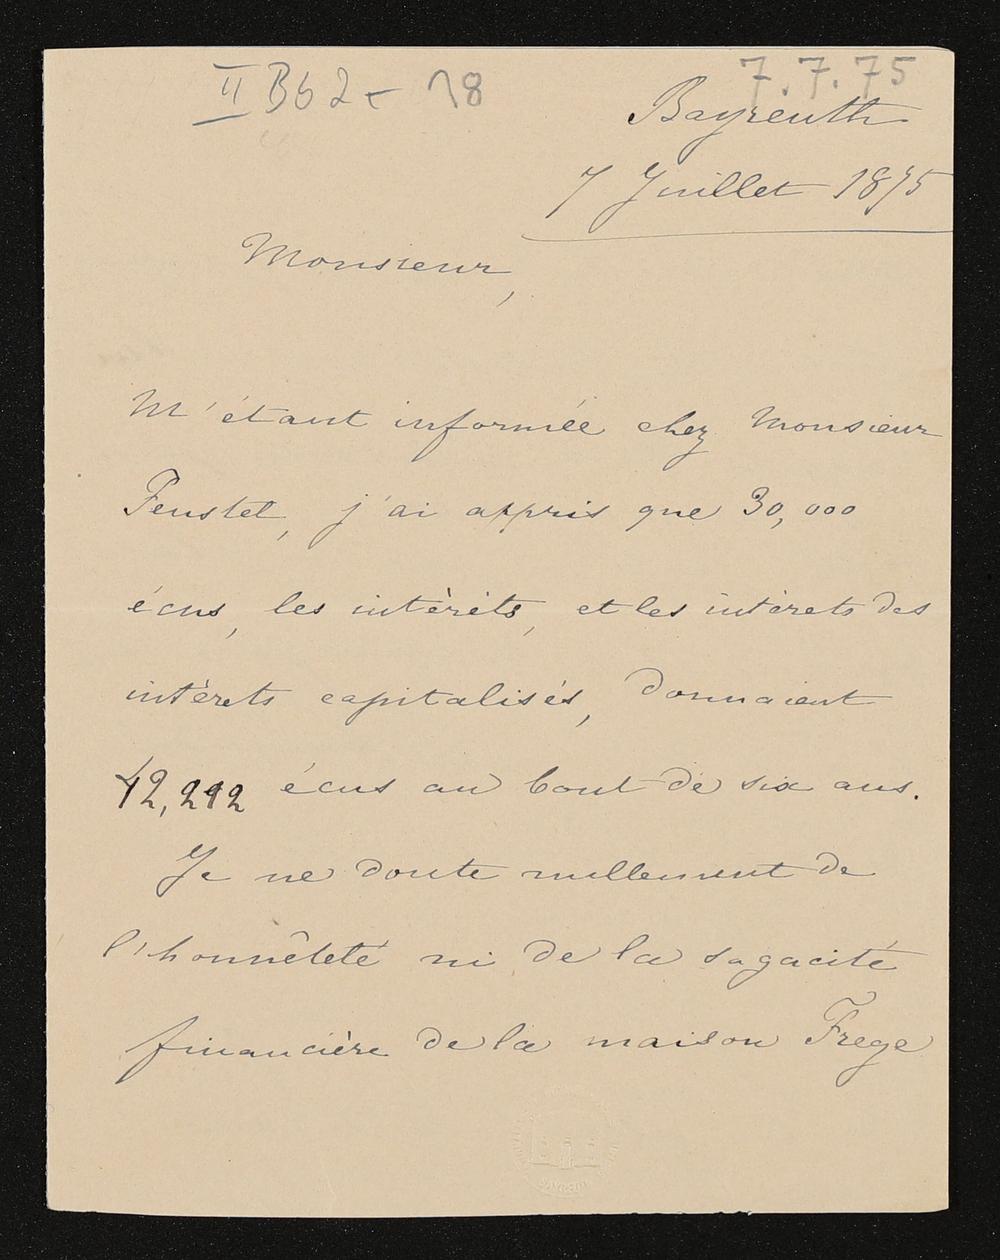 II B62 - 18
7.7.75
Bayreuth
7 Juillet 1875
Monsieur,
M'étant informée chez Monsieur
Feustel, j'ai appris que 30,000
écus, les intérêts, et les intérets des
intérets capitalisés, donnaient
42,292 écus au bout de six ans.
Je ne doute nullement de
l'honnêteté ni de la sagacité
financière de la maison Frege